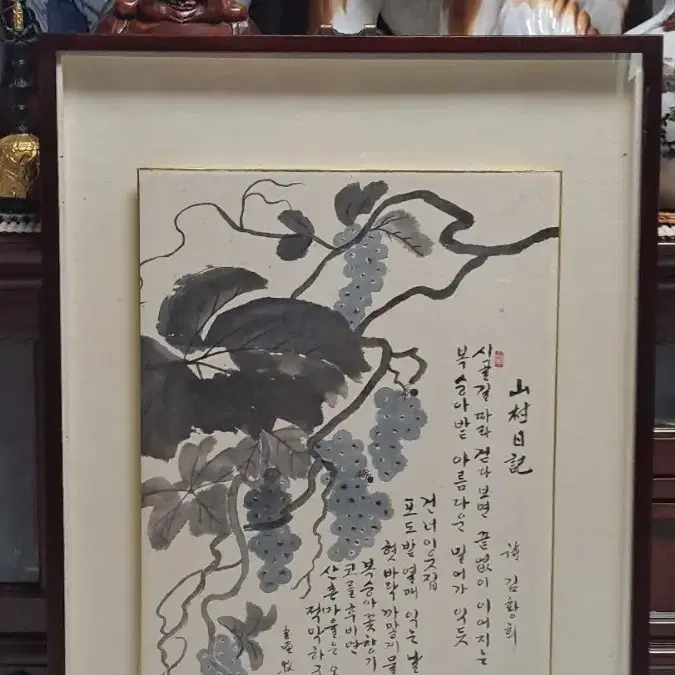 山村日記
詩 김황희
시골길 따라 걷다 보면 끝없이 이어지는
복숭아밭 아름다운 밀어가 익듯
건너 이웃집
포도밭 열매 익은 날
혓바닥 까맣게 물
복숭아꽃 향기
코를 후비면
산촌 가을은
적막하